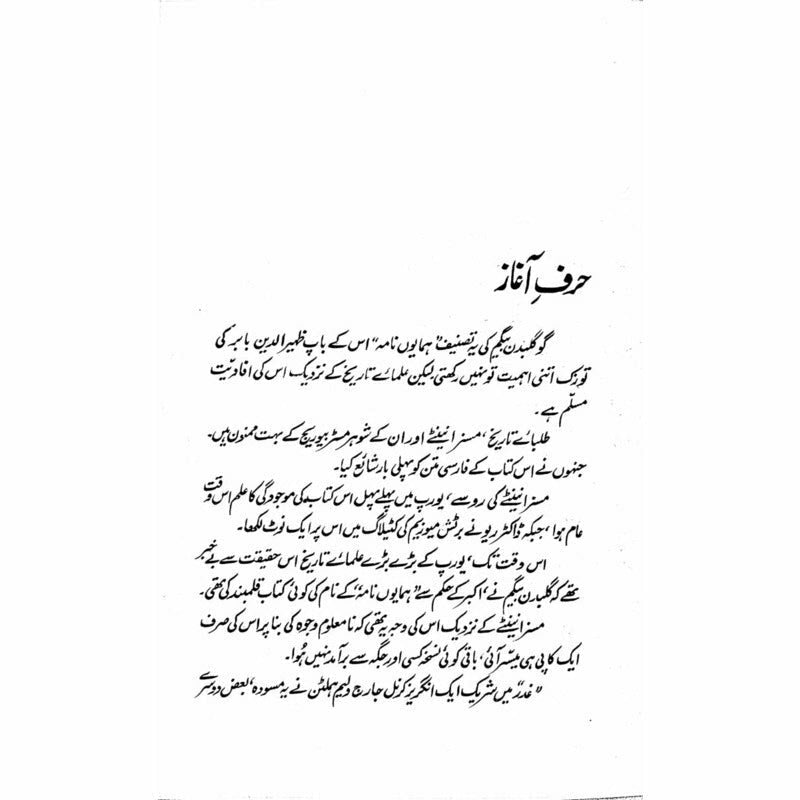 حرفِ آغاز
گو گلبدن بیگم کی یہ تصنیف "ہمایوں نامہ" اس کے باپ ظہیرالدین بابر کی
توزک اتنی اہمیت تو نہیں رکھتی لیکن علمائے تاریخ کے نزدیک اس کی افادیّت
مسلّم ہے۔
طلبائے تاریخ، مسز اینیٹے اور ان کے شوہر مسٹر بیوریج کے بہت ممنون ہیں۔
جنہوں نے اس کتاب کے فارسی متن کو پہلی بار شائع کیا۔
مسز اینیٹے کی رو سے، یورپ میں پہلے پہل اس کتاب کی موجودگی کا علم اس وقت
عام ہوا، جبکہ ڈاکٹر ریو نے برٹش میوزیم کی کٹیلاگ میں اس پر ایک نوٹ لکھا۔
اس وقت تک، یورپ کے بڑے بڑے علمائے تاریخ اس حقیقت سے بے خبر
تھے کہ گلبدن بیگم نے، اکبر کے حکم سے "ہمایوں نامہ" کے نام کی کوئی کتاب قلمبند کی تھی۔
مسز اینیٹے کے نزدیک اس کی وجہ یہ تھی کہ نامعلوم وجوہ کی بنا پر اس کی صرف
ایک کاپی ہی میسّر آئی، باقی کوئی نسخہ کسی اور جگہ سے برآمد نہیں ہُوا۔
"غدر" میں شریک ایک انگریز کرنل جارج ولیم ہملٹن نے یہ مسودہ، بعض دوسرے